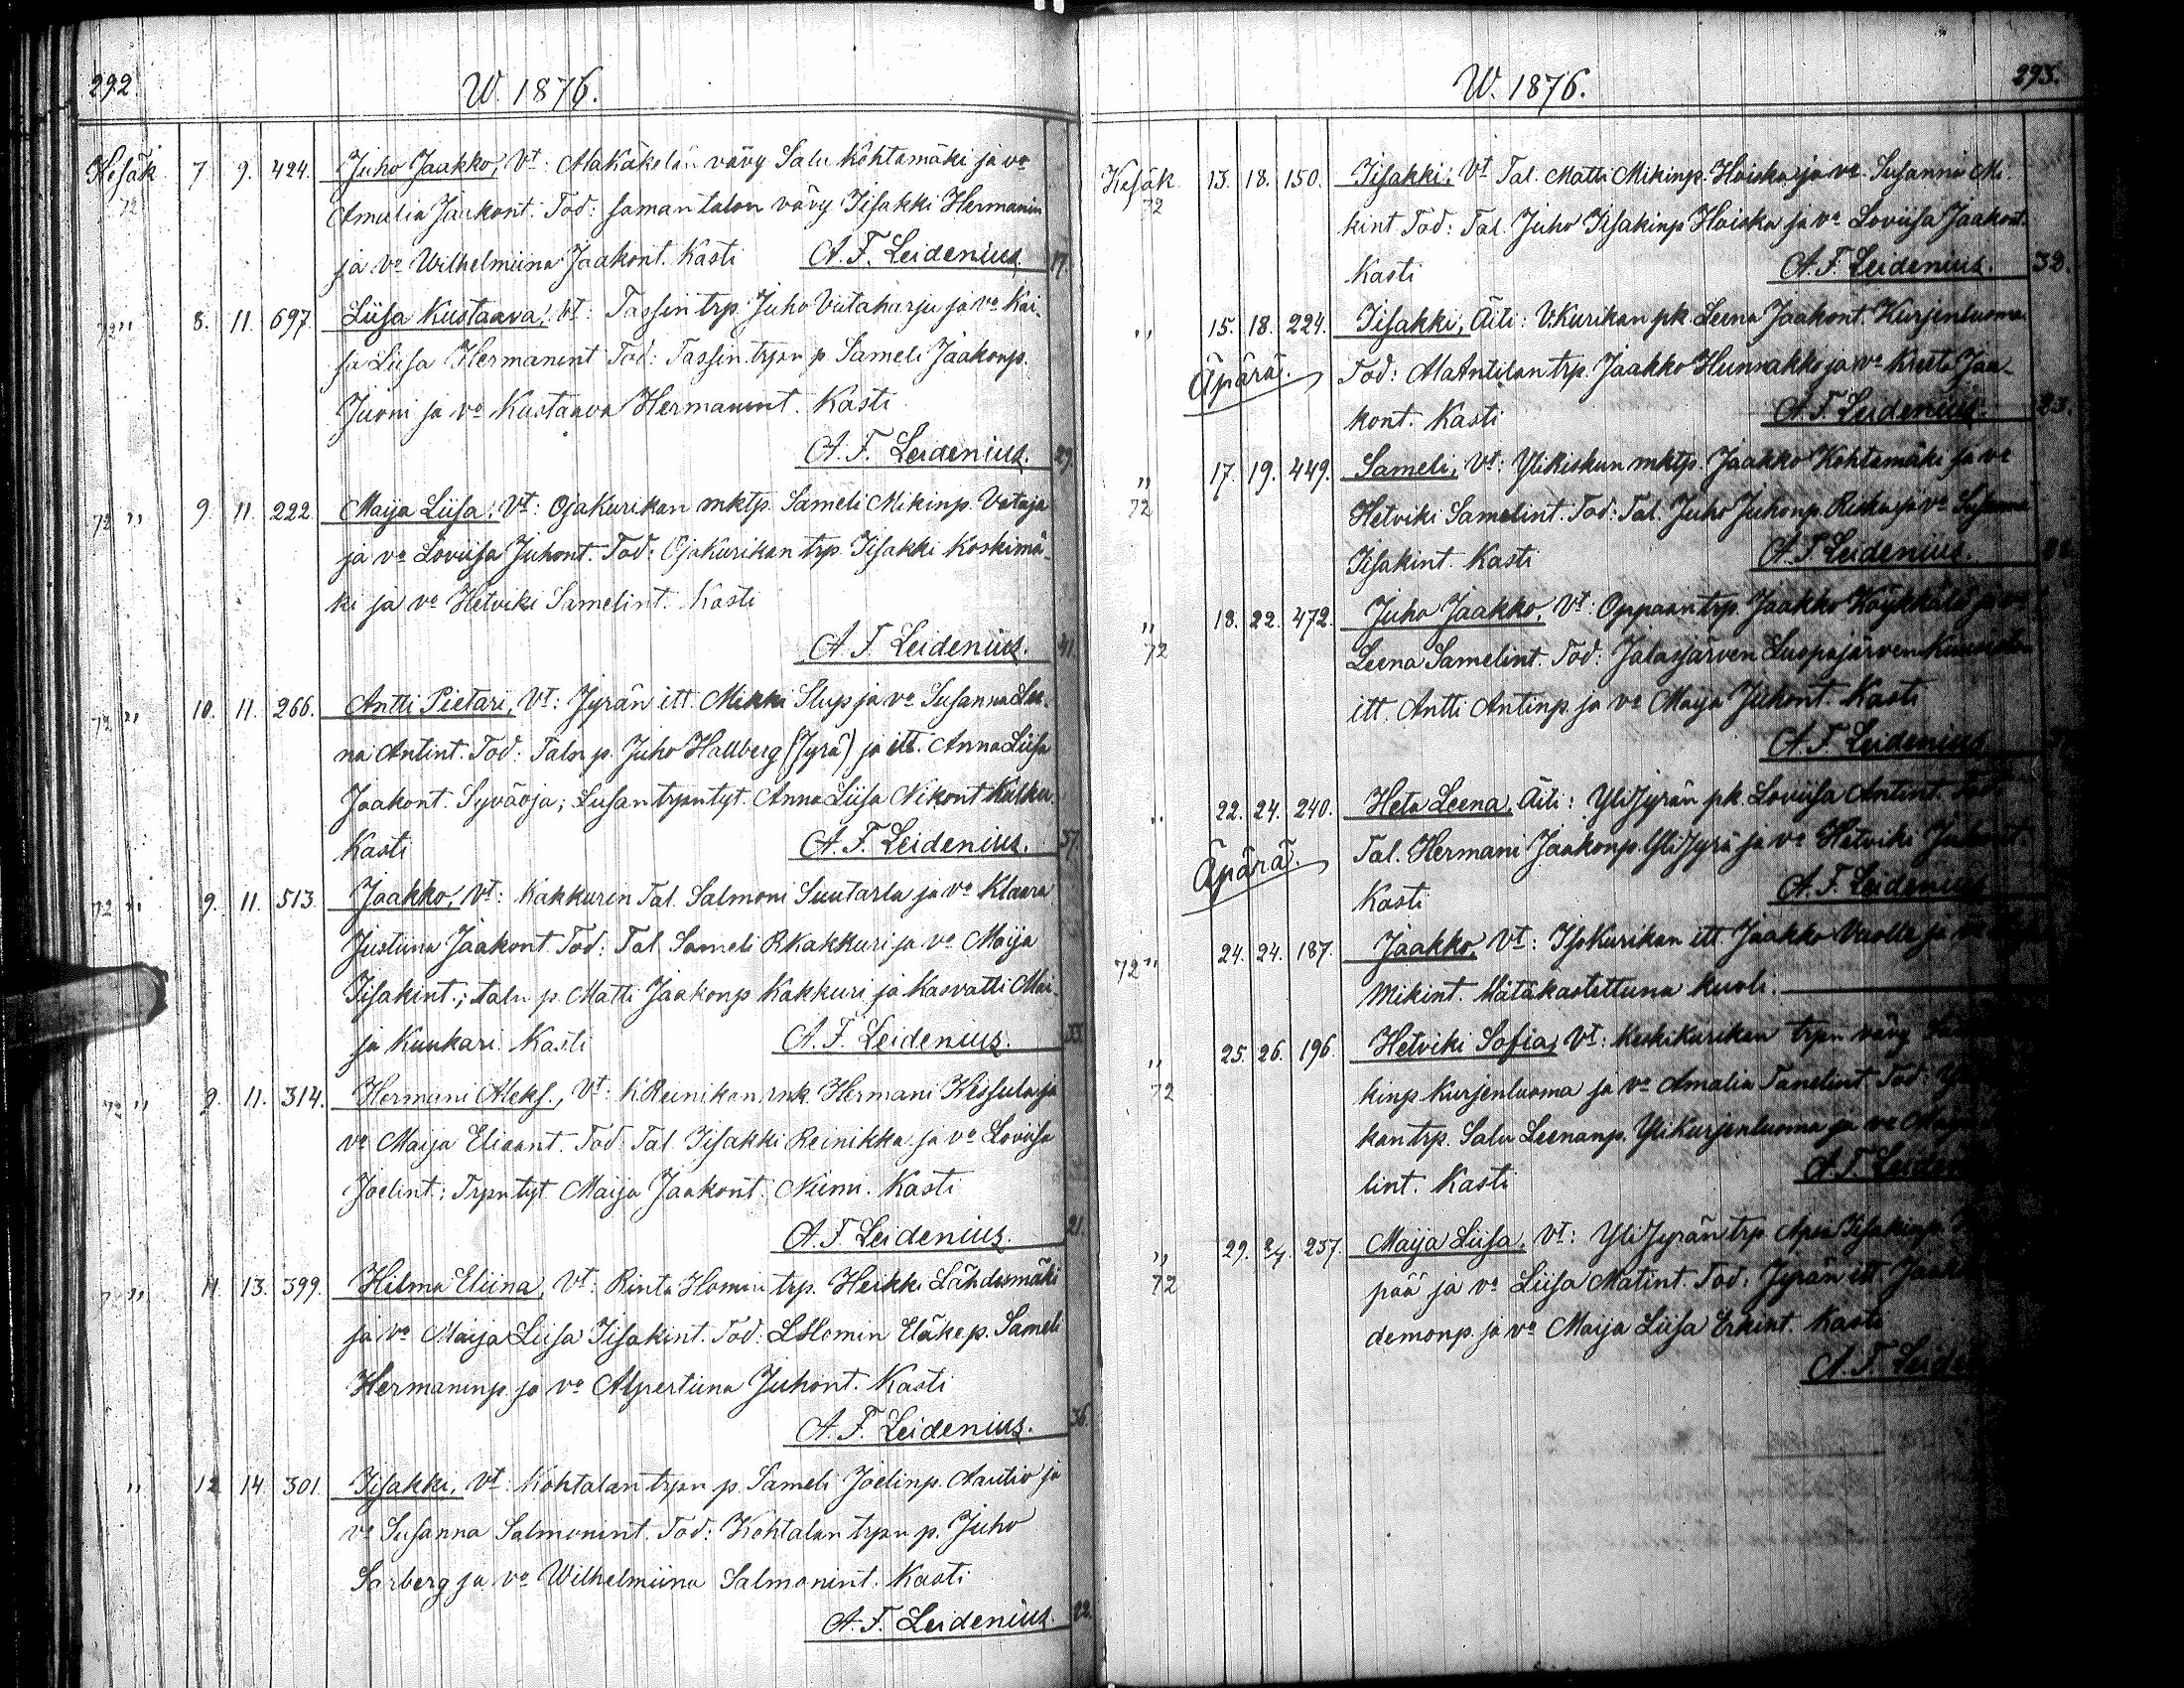 292.
W. 1876.
Kesäk. 7. 9. 424. Juho Jaakko, Vt: AlaKäkelän vävy Salu Kohtamäki ja vo
72 Amalia Jaakont. Tod: saman talon vävy Iisakki Hermanin
ja vo Wilhelmiina Jaakont. Kasti A. F. Leidenius. 17.
72 " 8. 11. 697. Liisa Kustaava, Vt: Tassin trp. Juho Vataharju ja vo Kai-
sa Liisa Hermanint Tod: Tassin trpn p. Sameli Jaakonp.
Juoni ja vo Kustaava Hermanint. Kasti
A. F. Leidenius. 29.
72 " 9. 11. 222. Maija Liisa, Vt: OjaKurikan mktp. Sameli Mikinp. Vataja
ja vo Loviisa Juhont. Tod: OjaKurikan trp. Iisakki Koskimä-
ki ja vo Hetviki Samelint. Kasti
A. F. Leidenius. 41.
72 " 10. 11. 266. Antti Pietari, Vt: Jyrän itt. Mikki Slup ja vo Susanna Lee-
na Antint. Tod: Taln p. Juho Hallberg (Jyrä) ja itt. Anna Liisa
Jaakont. Syväoja; Lusan trpn tyt. Anna Liisa Nikont Kalku.
Kasti A. F. Leidenius. 37.
72 " 9. 11. 513. Jaakko, Vt: Kakkurin Tal. Salmoni Suutarla ja vo Klaara
Justiina Jaakont. Tod: Tal. Sameli RKakkuri ja vo Maija
Iisakint.; taln p. Matti Jaakonp Kakkuri ja Kasvatti Mai-
ja Kuukari. Kasti A. F. Leidenius. 33.
72 " 9. 11. 314. Hermani Aleks., Vt: KReinikan rnk. Hermani Kessula ja
vo Maija Eliaant. Tod: Tal. Iisakki Reinikka ja vo Loviisa
Joelint; Trpn tyt. Maija Jaakont. Niemi. Kasti
A. F. Leidenius. 21.
7 " 11. 13. 399. Hilma Eliina, Vt: Rinta Homin trp. Heikki Lähdesmäki
ja vo Maija Liisa Iisakint. Tod: LHomin Eläkep. Sameli
Hermaninp. ja vo Alpertiina Juhont. Kasti
A. F. Leidenius. 36.
" 12. 14. 301. Iisakki, Vt: Kohtalan trpn p. Sameli Joelinp. Aautio ja
vo Susanna Salmonint. Tod: Kohtalan trpn p. Juho
Sarberg ja vo Wilhelmiina Salmonint. Kasti
A. F. Leidenius. 22.
W. 1876. 293.
Kesäk. 13. 18. 150. Iisakki, Vt Tal. Matti Mikinp. Hoiska ja vo Susanna Mi-
72 kint Tod: Tal. Juho Iisakinp Hoiska ja vo Loviisa Jaakont.
Kasti A. F. Leidenius. 32.
" 15. 18. 224. Iisakki, Äiti: V.Kurikan pk. Leena Jaakont. Kurjenluoma
Äpärä. Tod: AlaAntilan trp. Jaakko Hunnakko ja vo Kreeta Jaa-
kont. Kasti A. F. Leidenius. 23.
" 17. 19. 449. Sameli, Vt: YliKiskun mktp. Jaakko Kohtamäki ja vo
72 Hetviki Samelint. Tod: Tal. Juho Juhonp. Riska ja vo Susanna
Iisakint. Kasti A. F. Leidenius.
" 18. 22. 472. Juho Jaakko, Vt: Oppaan trp. Jaakko Köykkälä ja vo
72 Leena Samelint. Tod: Jalasjärven Luopajärven
itt. Antti Antinp. ja vo Maija Juhont. Kasti
A. F. Leidenius
" 22. 24. 240. Heta Leena, Äiti: YliJyrän pk. Loviisa Antint. Tod:
Äpärä. Tal. Hermani Jaakonp. YliJyrä ja vo Hetviki
Kasti A. F. Leidenius
72 " 24. 24. 187. Jaakko, Vt: IsoKurikan itt. Jaakko Vuolle ja vo
Mikint. Hätäkastettuna kuoli.
" 25. 26. 196. Hetviki Sofia, Vt: KeskiKurikan trpn vävy
72 kinp. Kurjenluoma ja vo Amalia Tanelint Tod:
kan trp. Salu Leenanp. YliKurjenluoma ja vo
lint. Kasti A. F. Leiden
" 29. 2/7. 257. Maija Liisa, Vt: YliJyrän trp. Apea Iisakinp.
72 pää ja vo Liisa Matint. Tod: Jyrän itt. Jaak
demonp. ja vo Maija Liisa Erkint. Kasti
A. F. Leide